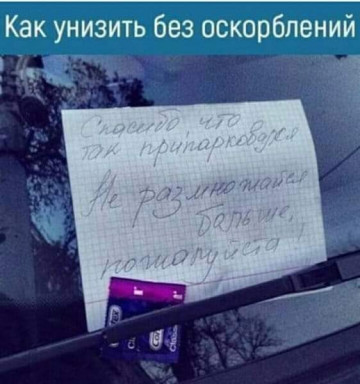 Как унизить без оскорблений
Спасибо что
так припарковался
Не размножайся
больше,
пожалуйста!